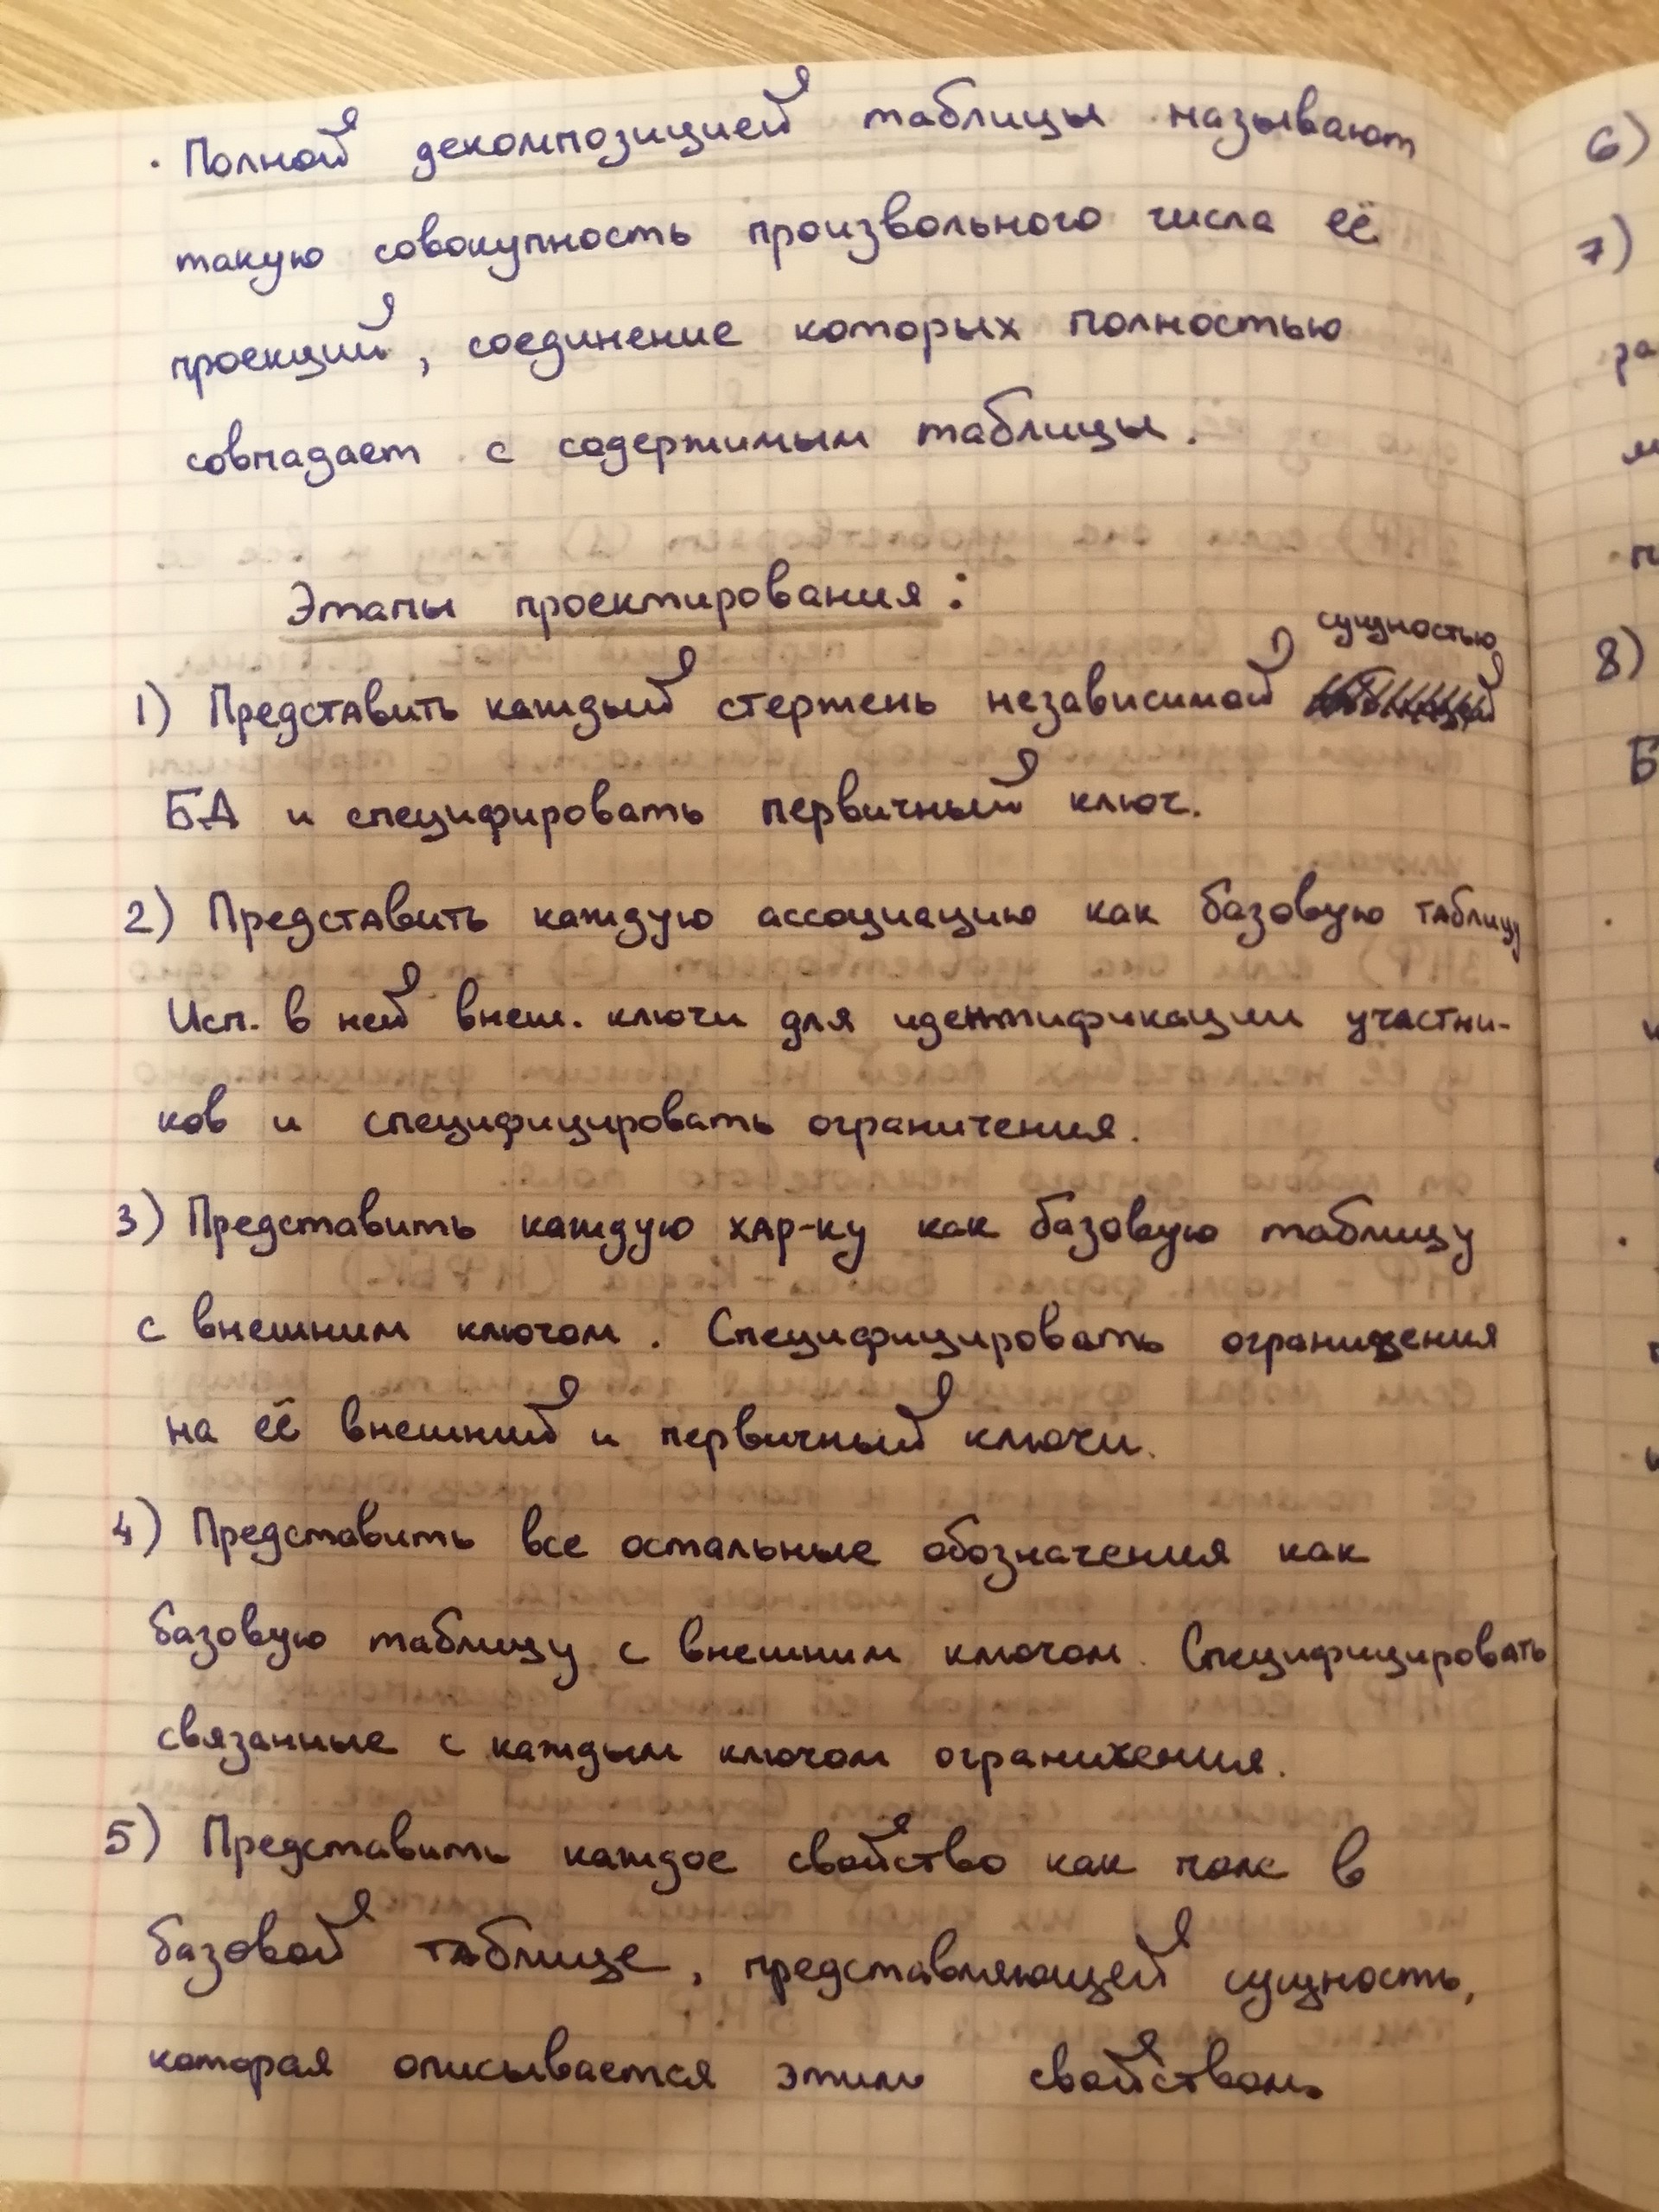 · Полной декомпозицией таблицы называют
такую совокупность произвольного числа её
проекций, соединение которых полностью
совпадает с содержимым таблицы.
Этапы проектирования:
сущностью
1) Представить каждый стержень независимой
БД и специфировать первичный ключ.
2) Представить каждую ассоциацию как базовую таблицу
Исп. в ней внеш. ключи для идентификации участни-
ков и специфицировать ограничения.
3) Представить каждую хар-ку как базовую таблицу
с внешним ключом. Специфицировать ограничения
на её внешний и первичный ключи.
4) Представить все остальные обозначения как
базовую таблицу с внешним ключом. Специфицировать
связанные с каждым ключом ограничения.
5) Представить каждое свойство как поле в
базовой таблице, представляющей сущность,
которая описывается этим свойством.
6)
7)
8)
Б